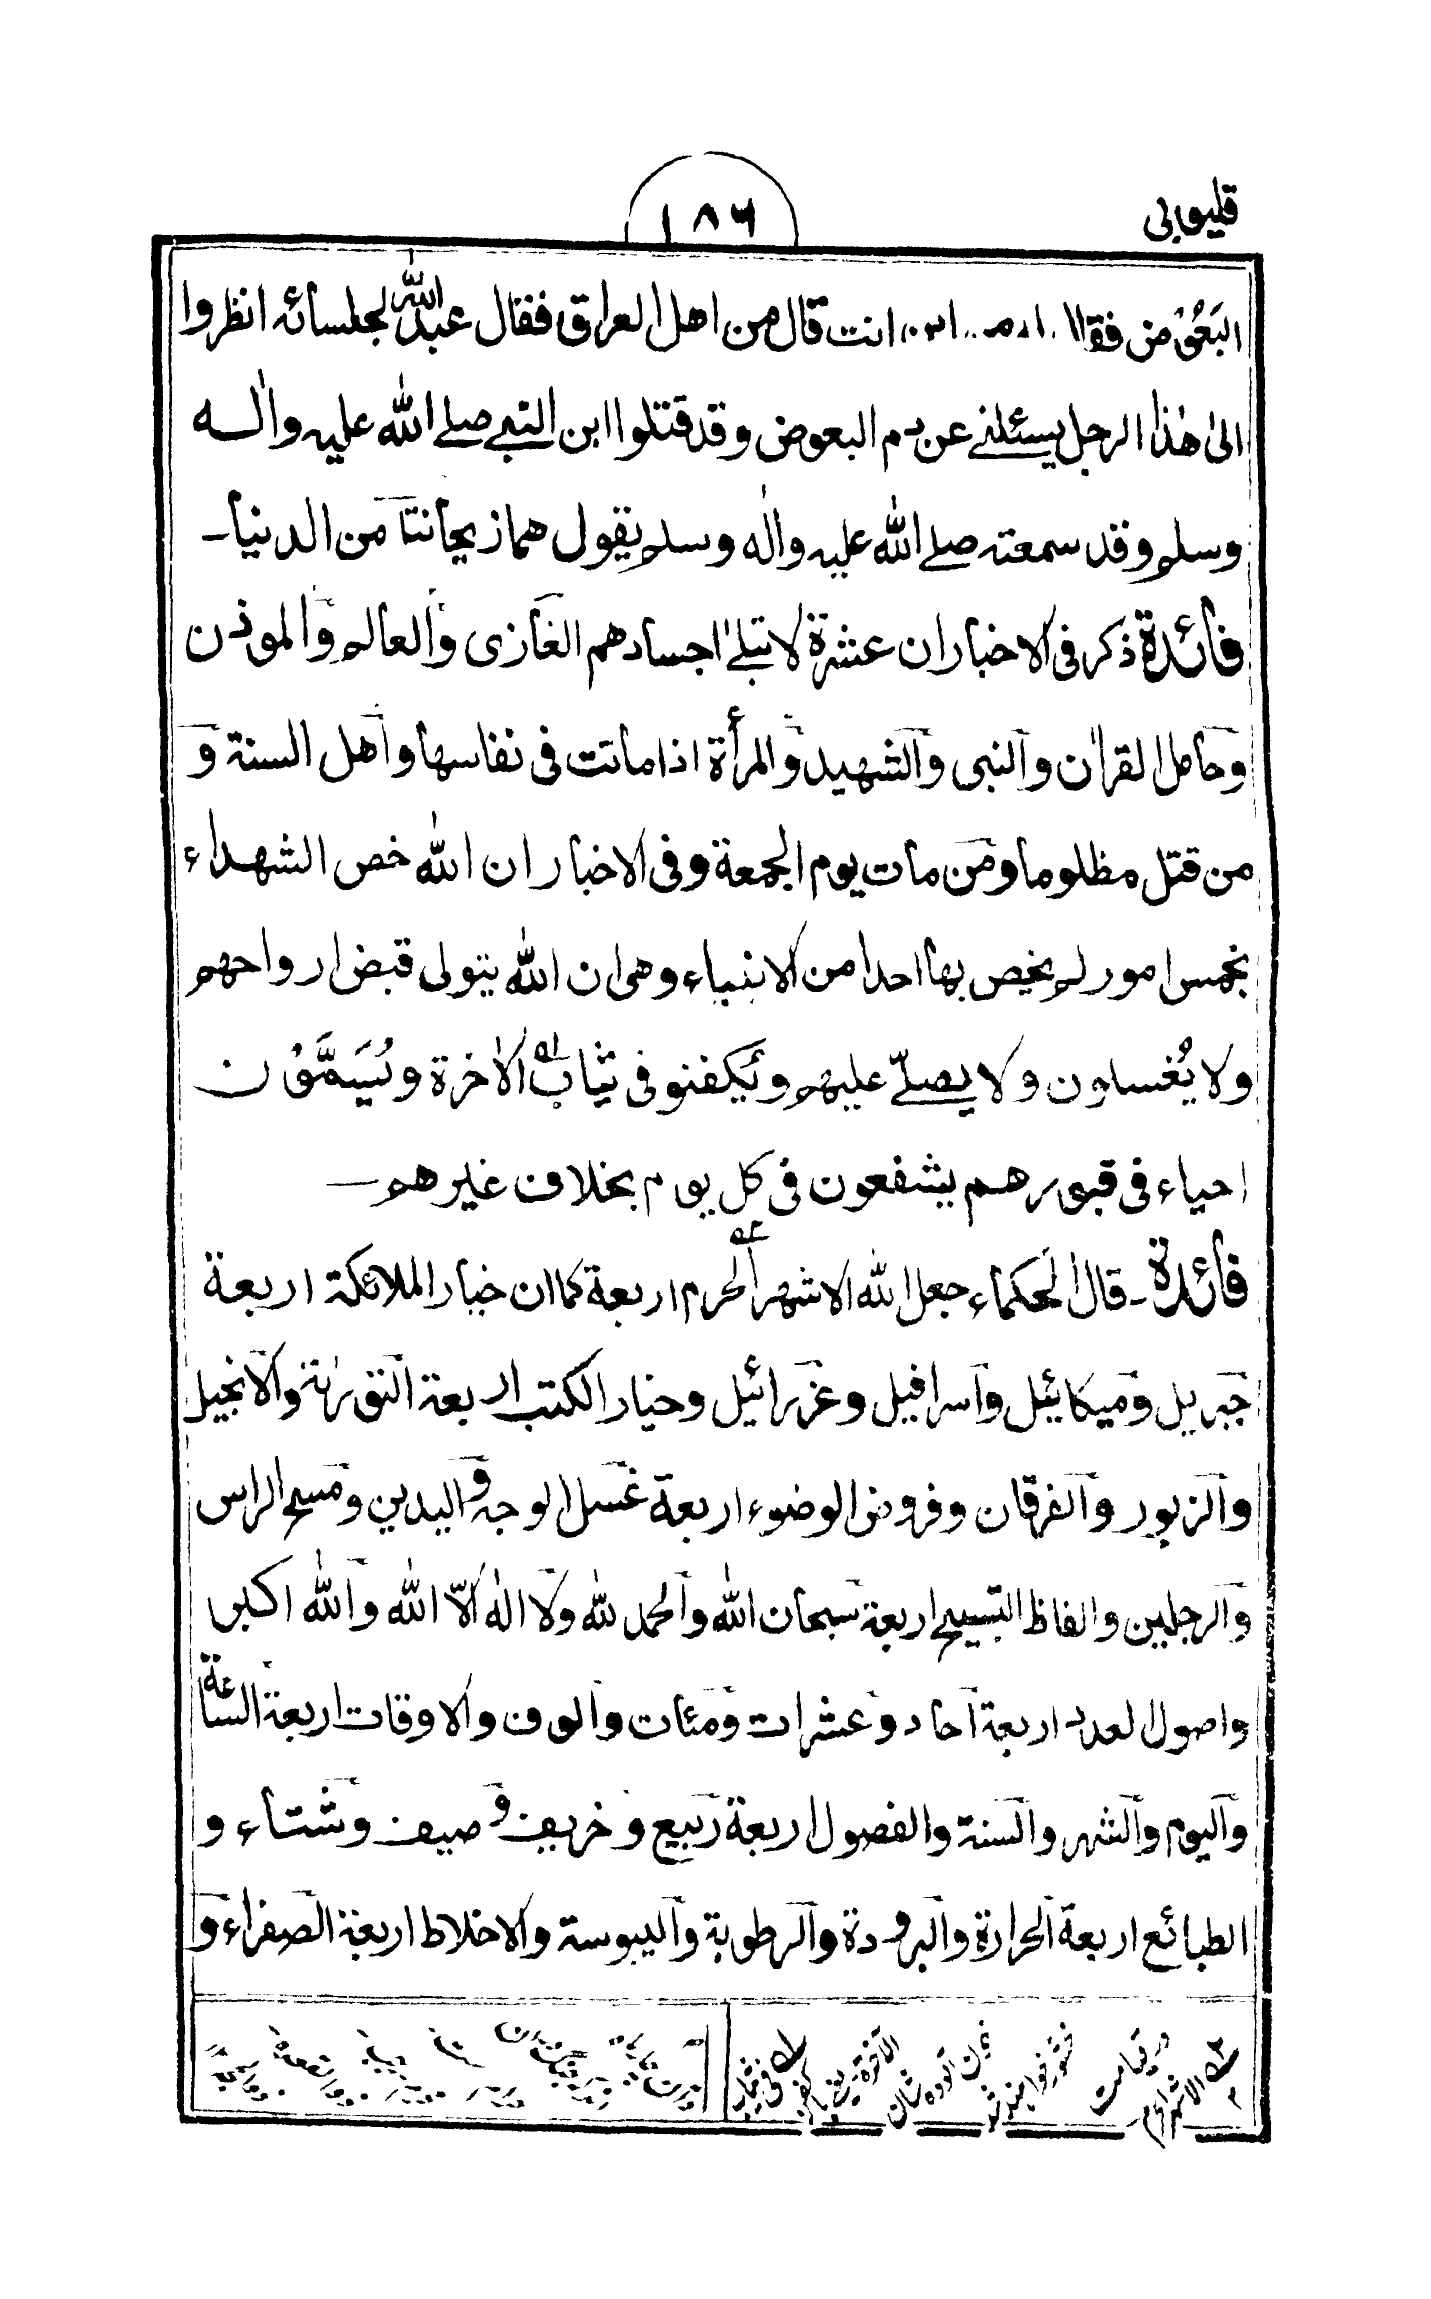 قليوبى
١٨٦
البَعُوْض فقال انت قال من اهل العراق فقال عبد الله لجلسائه انظروا
الىٰ هٰذا الرجل يسئلنے عن دم البعوض وقد قتلوا ابن النبے صلے الله عليه واٰلـه
وسلم وقد سمعته صلے الله عليه واٰله وسلم يقول هما ريحانتا من الدنيا۔
فائدة ذكر فى الاخبار ان عشرة لا تبلےٰ اجسادهم الغازى والعالم والموذن
وحامل القراٰن والنبى والشهيد والمرأة اذا ماتت فى نفاسها واهل السنة و
من قتل مظلوما ومن مات يوم الجمعة وفى الاخبار ان الله خص الشهداء
بخمس امور لم يخص بها احدا من الانبياء وهى ان الله يتولى قبض ارواحهم
ولا يُغسلون ولا يصلّے عليهم ويكفنو فى ثياب الاٰخرة ويُسَمَّوْن
احياء فى قبورهم يشفعون فى كل يوم بخلاف غيرهم ــ
فائدة ۔ قال الحكماء جعل الله الاشهر الحرم اربعة كما ان خيار الملائكة اربعة
جبريل وميكائيل واسرافيل وعزرائيل وخيار الكتب اربعة التورٰىة والانجيل
والزبور والفرقان وفروض الوضوء اربعة غسل الوجه واليدين ومسح الراس
والرجلين والفاظ التسبيح اربعة سبحان الله والحمد لله ولا الٰه الّا الله والله اكبر
واصول العدد اربعة اٰحاد وعشرات ومئات والوف والاوقات اربعة الساعة
واليوم والشهر والسنة والفصول اربعة ربيع وخريف وصيف وشتاء و
الطبائع اربعة الحرارة والبرودة والرطوبة واليبوسة والاخلاط اربعة الصفراء و
فى ثياب الآخرة